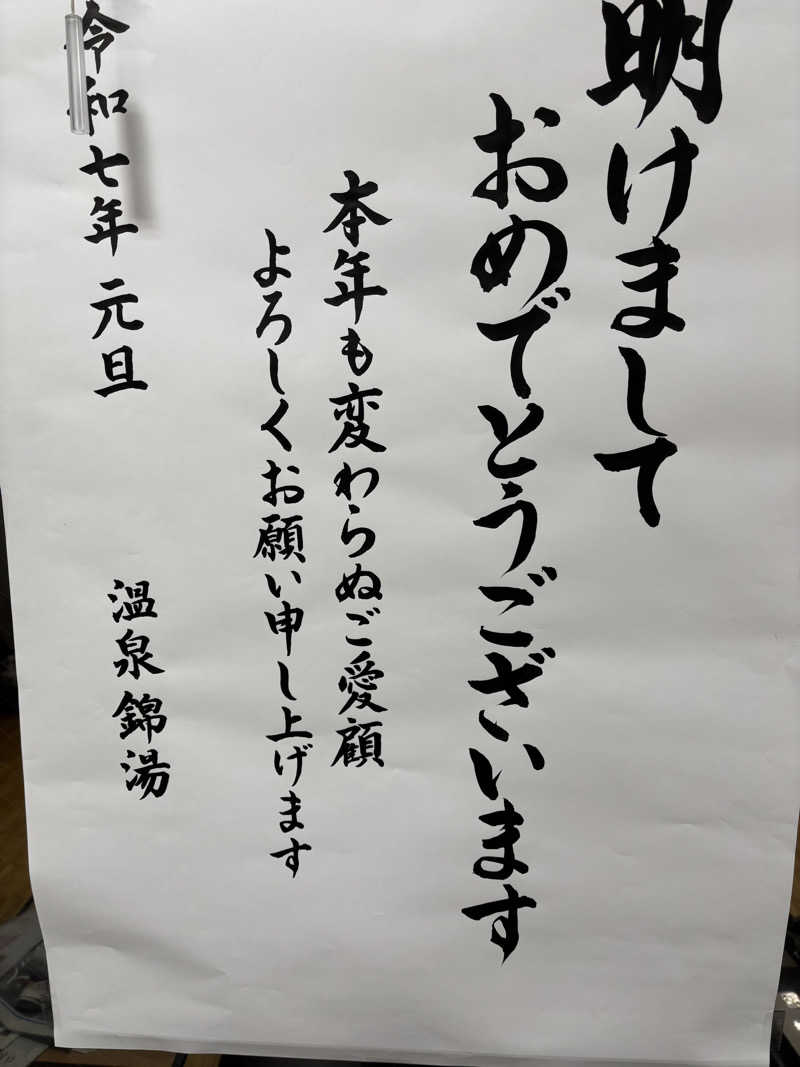 明けまして
おめでとうございます
本年も変わらぬご愛顧
よろしくお願い申し上げます
令和七年 元旦
温泉錦湯